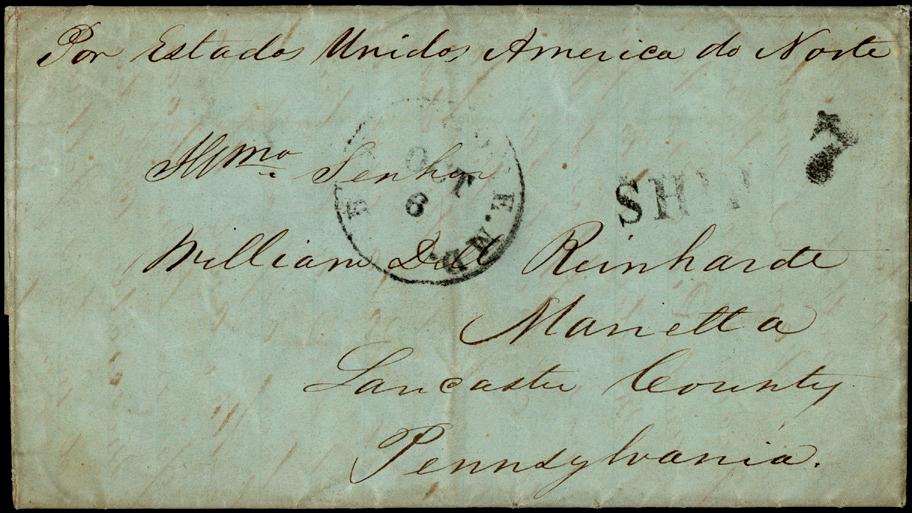 Por Estados Unidos America do Norte
7
Illmo Senhor
OCT
6
SHIP
William Dall Reinhardt
Marietta
Lancaster County
Pennsylvania.